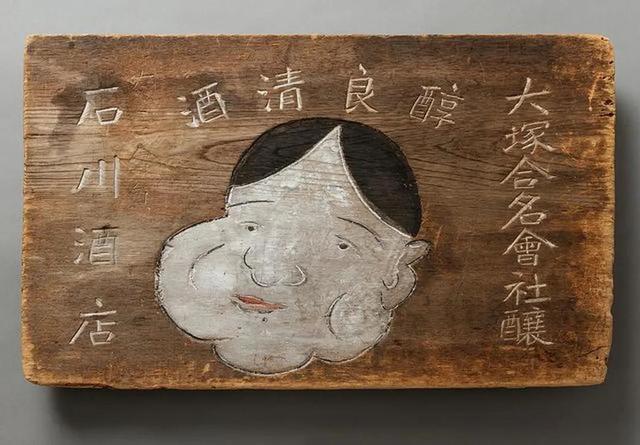 大塚合名會社釀
醇良清酒
石川酒店